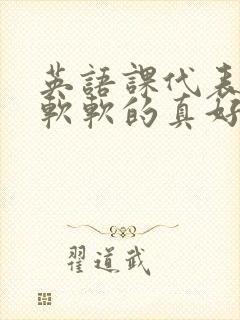 英語課代表
軟軟的真好
翟道武